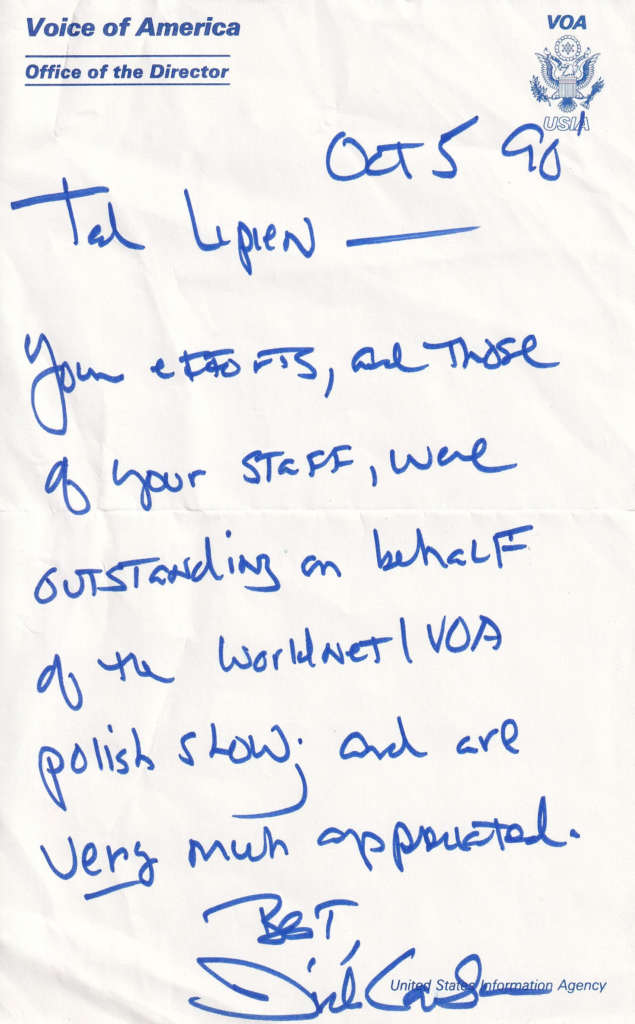 Voice of America
Office of the Director
VOA
USIA
Oct 5 90'
Ted Lipien —
Your efforts, and those
of your staff, were
outstanding on behalf
of the Worldnet/VOA
polish show; and are
very much appreciated.
Best,
United States Information Agency